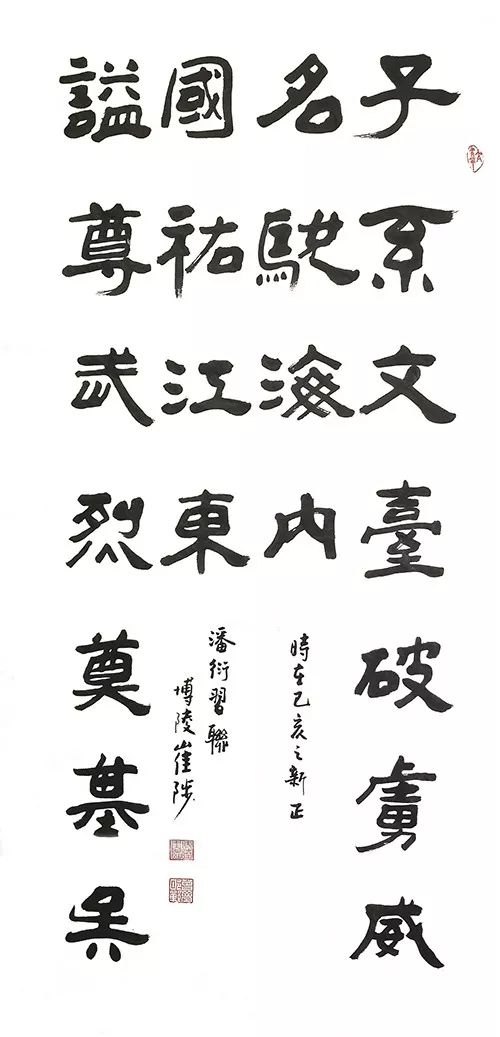 子系文臺破虜威
名馳海内
時在己亥之新正
謚尊武烈奠基吳
國祐江東
潘衍習聯
博陵崔陟